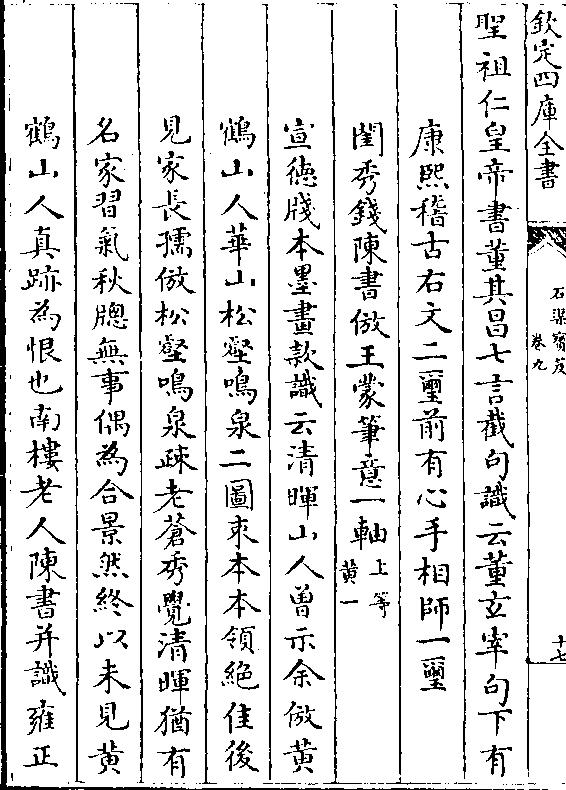 欽定四庫全書
石渠寶笈
卷九
十七
聖祖仁皇帝書董其昌七言截句識云董玄宰句下有
康熙稽古右文二璽前有心手相師一璽
閨秀錢陳書倣王蒙筆意一軸上等
黄一
宣徳牋本墨畫款識云清暉山人曾示余倣黄
鶴山人華山松壑鳴泉二圖來本本領絶佳後
見家長孺倣松壑鳴泉疎老蒼秀覺清暉猶有
名家習氣秋牕無事偶為合景然終以未見黄
鶴山人真跡為恨也南樓老人陳書并識雍正